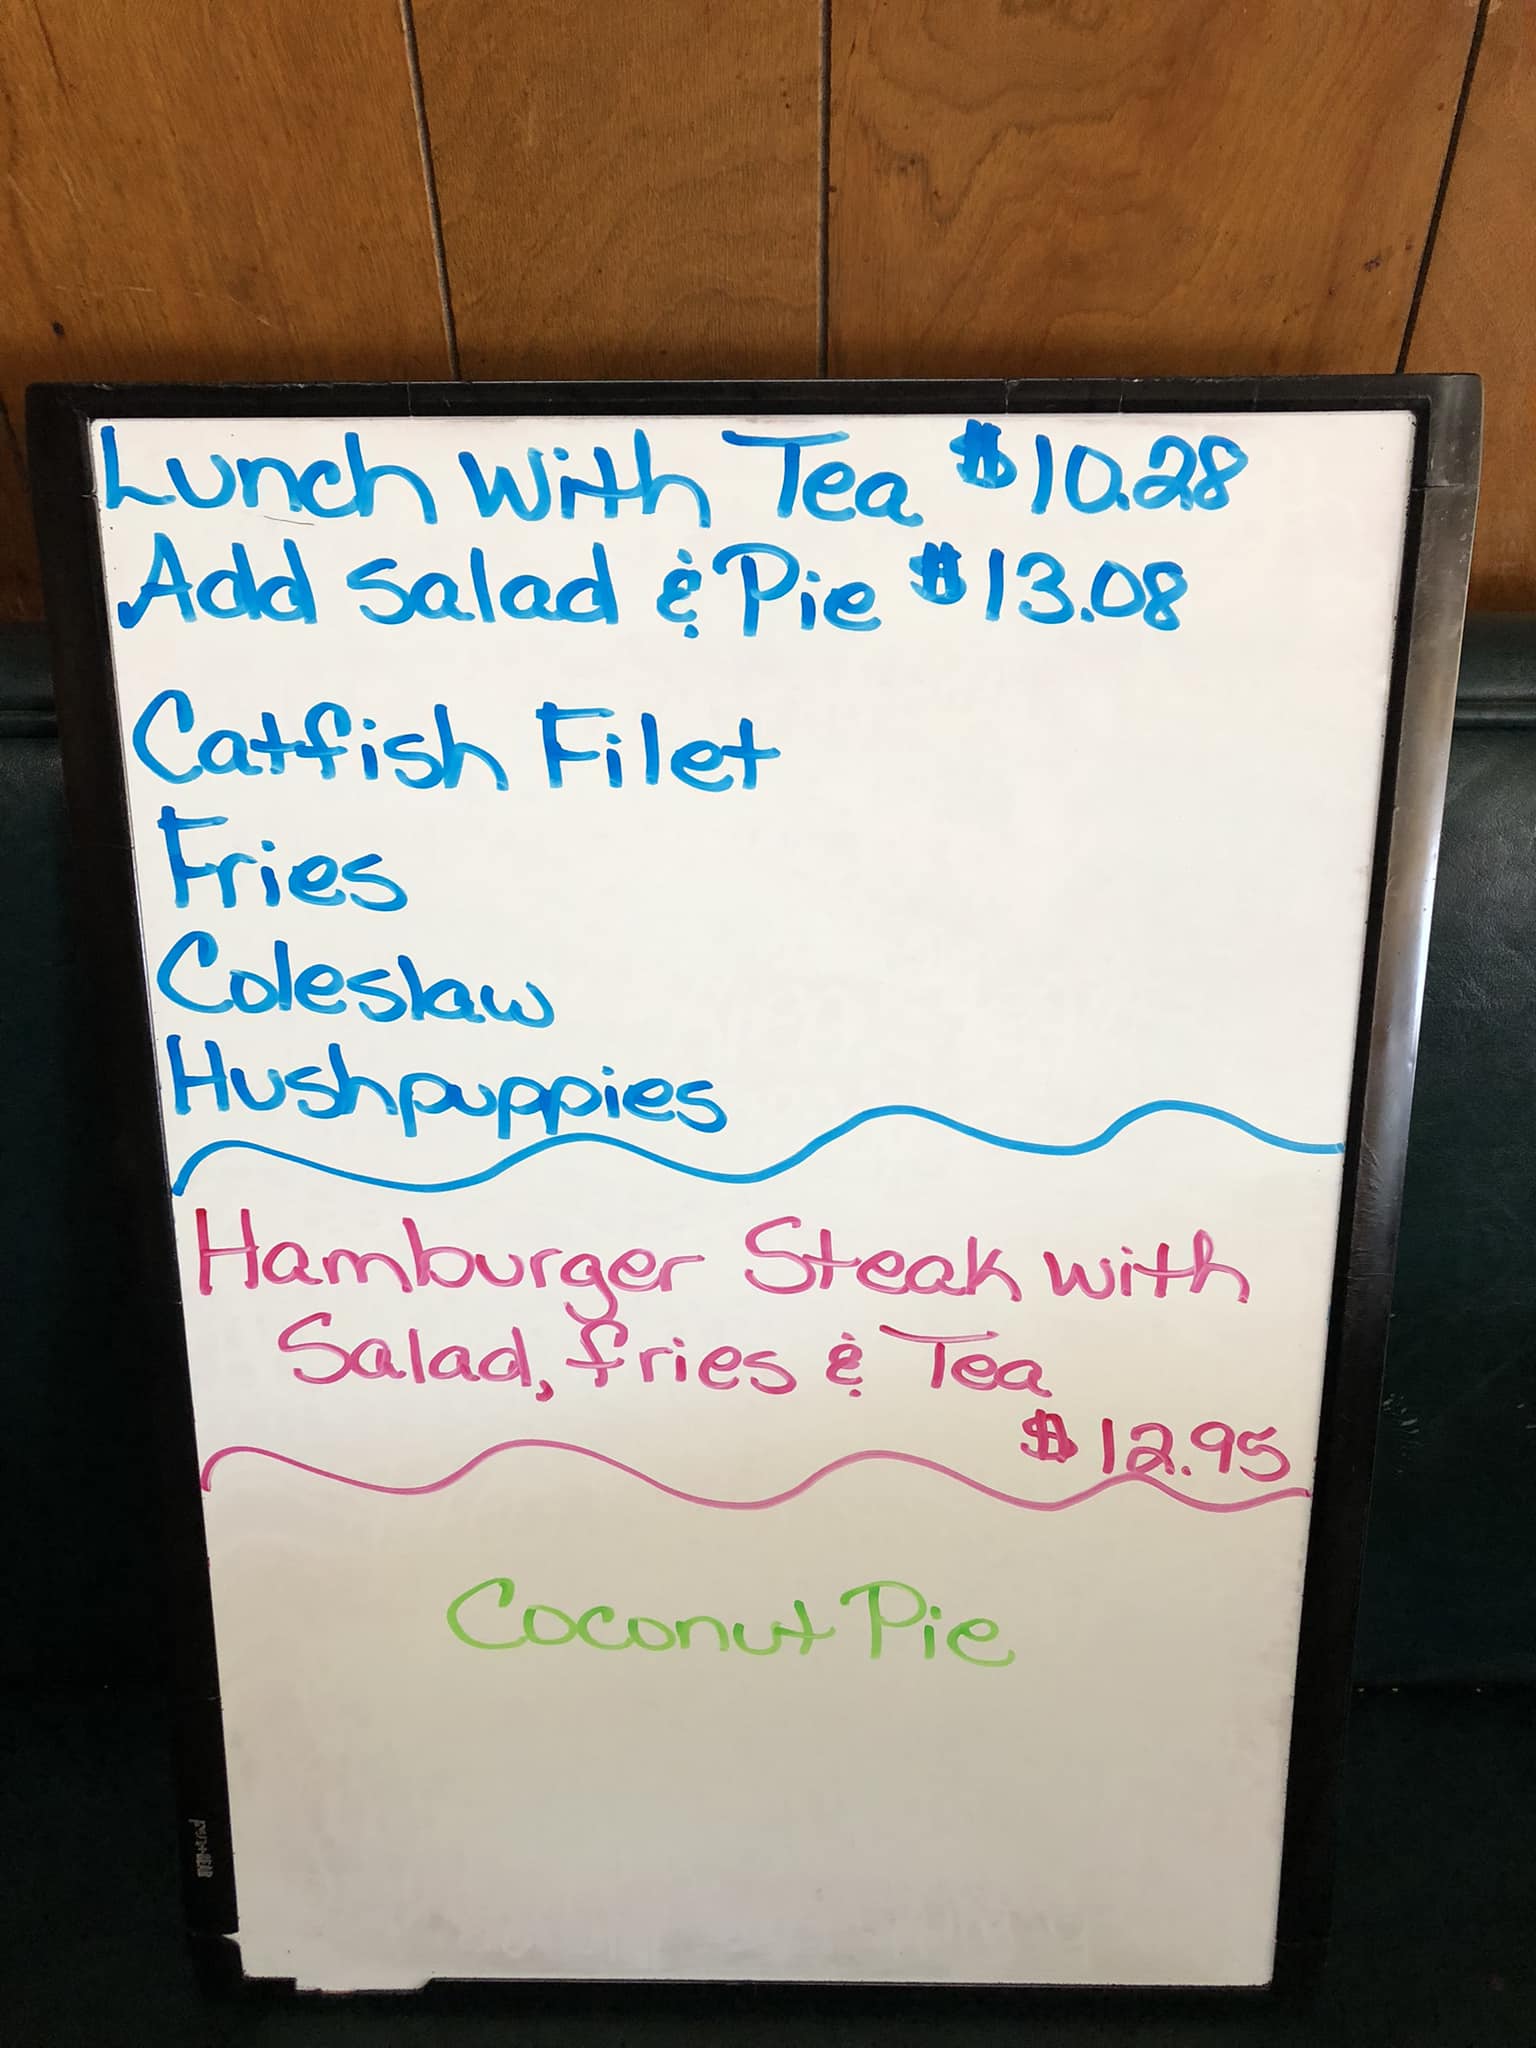 Lunch with Tea $10.28
Add Salad & Pie $13.08
Catfish Filet
Fries
Coleslaw
Hushpuppies
Hamburger Steak with
Salad, fries & Tea
$12.95
Coconut Pie